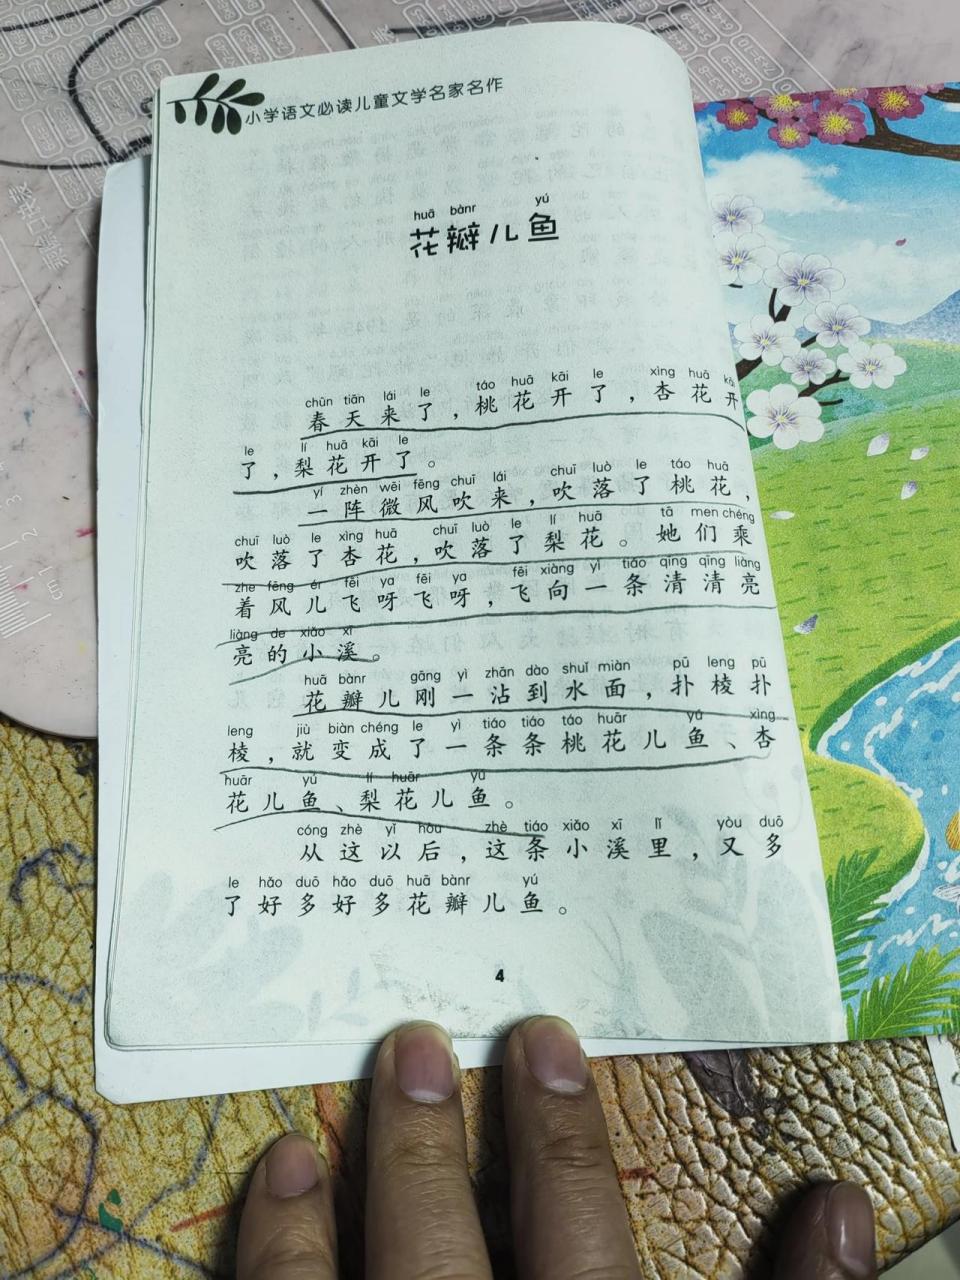 小学语文必读儿童文学名家名作
huā bànr yú
花瓣儿鱼
chūn tiān lái le táo huā kāi le xìng huā kāi
春天来了，桃花开了，杏花开
le lí huā kāi le
了，梨花开了。
yí zhèn wēi fēng chuī lái chuī luò le táo huā
一阵微风吹来，吹落了桃花，
chuī luò le xìng huā chuī luò le lí huā tā men chéng
吹落了杏花，吹落了梨花。她们乘
zhe fēng ér fēi ya fēi ya fēi xiàng yì tiáo qīng qīng liàng
着风儿飞呀飞呀，飞向一条清清亮
liàng de xiǎo xī
亮的小溪。
huā bànr gāng yì zhān dào shuǐ miàn pū leng pū
花瓣儿刚一沾到水面，扑棱扑
leng jiù biàn chéng le yì tiáo tiáo táo huār yú xìng
棱，就变成了一条条桃花儿鱼、杏
huār yú lí huār yú
花儿鱼、梨花儿鱼。
cóng zhè yǐ hòu zhè tiáo xiǎo xī lǐ yòu duō
从这以后，这条小溪里，又多
le hǎo duō hǎo duō huā bànr yú
了好多好多花瓣儿鱼。
4